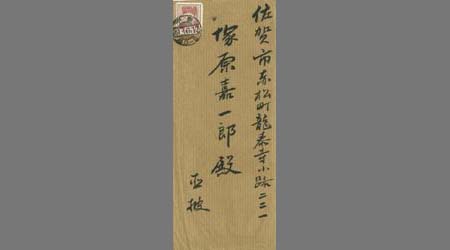 佐賀市東松町龍泰寺小路二二一
塚原嘉一郎殿
直披